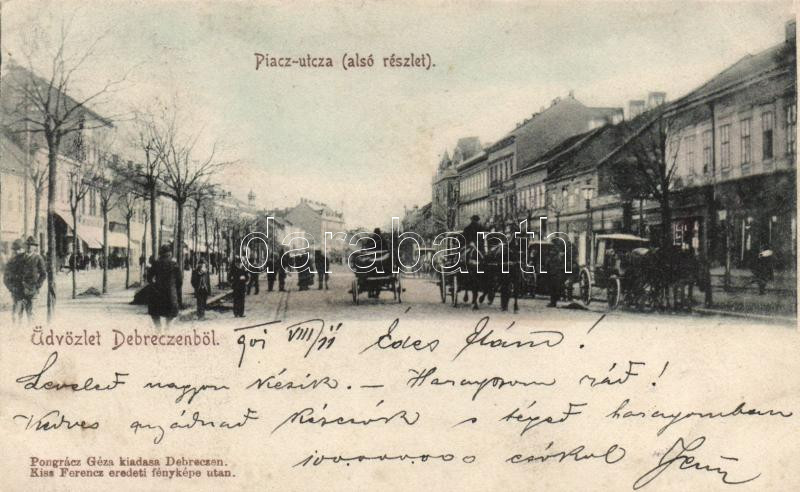 Piacz-utcza (alsó részlet).
darabanth
Üdvözlet Debreczenből. 901 VIII/11 Édes Mám!
Leveled nagyon késik. — Haragszom rád!
Kedves anyádnad s téged haragomban
100.000.000 csókol Jenő
Pongrácz Géza kiadasa Debreczen.
Kiss Ferencz eredeti fényképe utan.